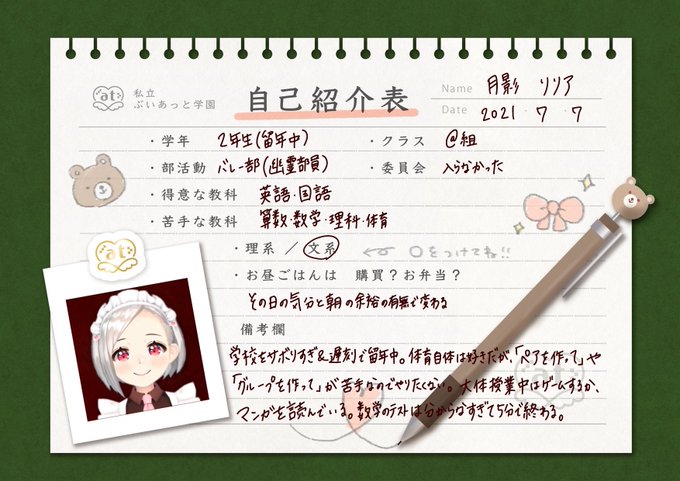 at
私立
ぶいあっと学園
自己紹介表
Name 月影 リリア
Date 2021・7・7
・学年 2年生(留年中)
・クラス @組
・部活動 バレー部(幽霊部員)
・委員会 入らなかった
・得意な教科 英語・国語
・苦手な教科 算数・数学・理科・体育
・理系 / 文系 ← ○をつけてね!!
at
・お昼ごはんは 購買?お弁当?
その日の気分と朝の余裕の有無で変わる
備考欄
学校をサボりすぎ&遅刻で留年中。体育自体は好きだが、「ペアを作って」や
「グループを作って」が苦手なのでやりたくない。大体授業中はゲームするか、
マンガを読んでいる。数学のテストは分からなすぎて5分で終わる。
at